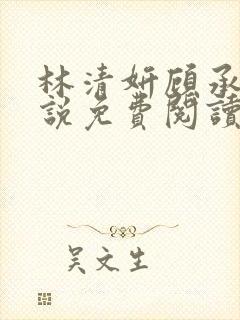 林清妍顾承
說免費閱讀
吴文生